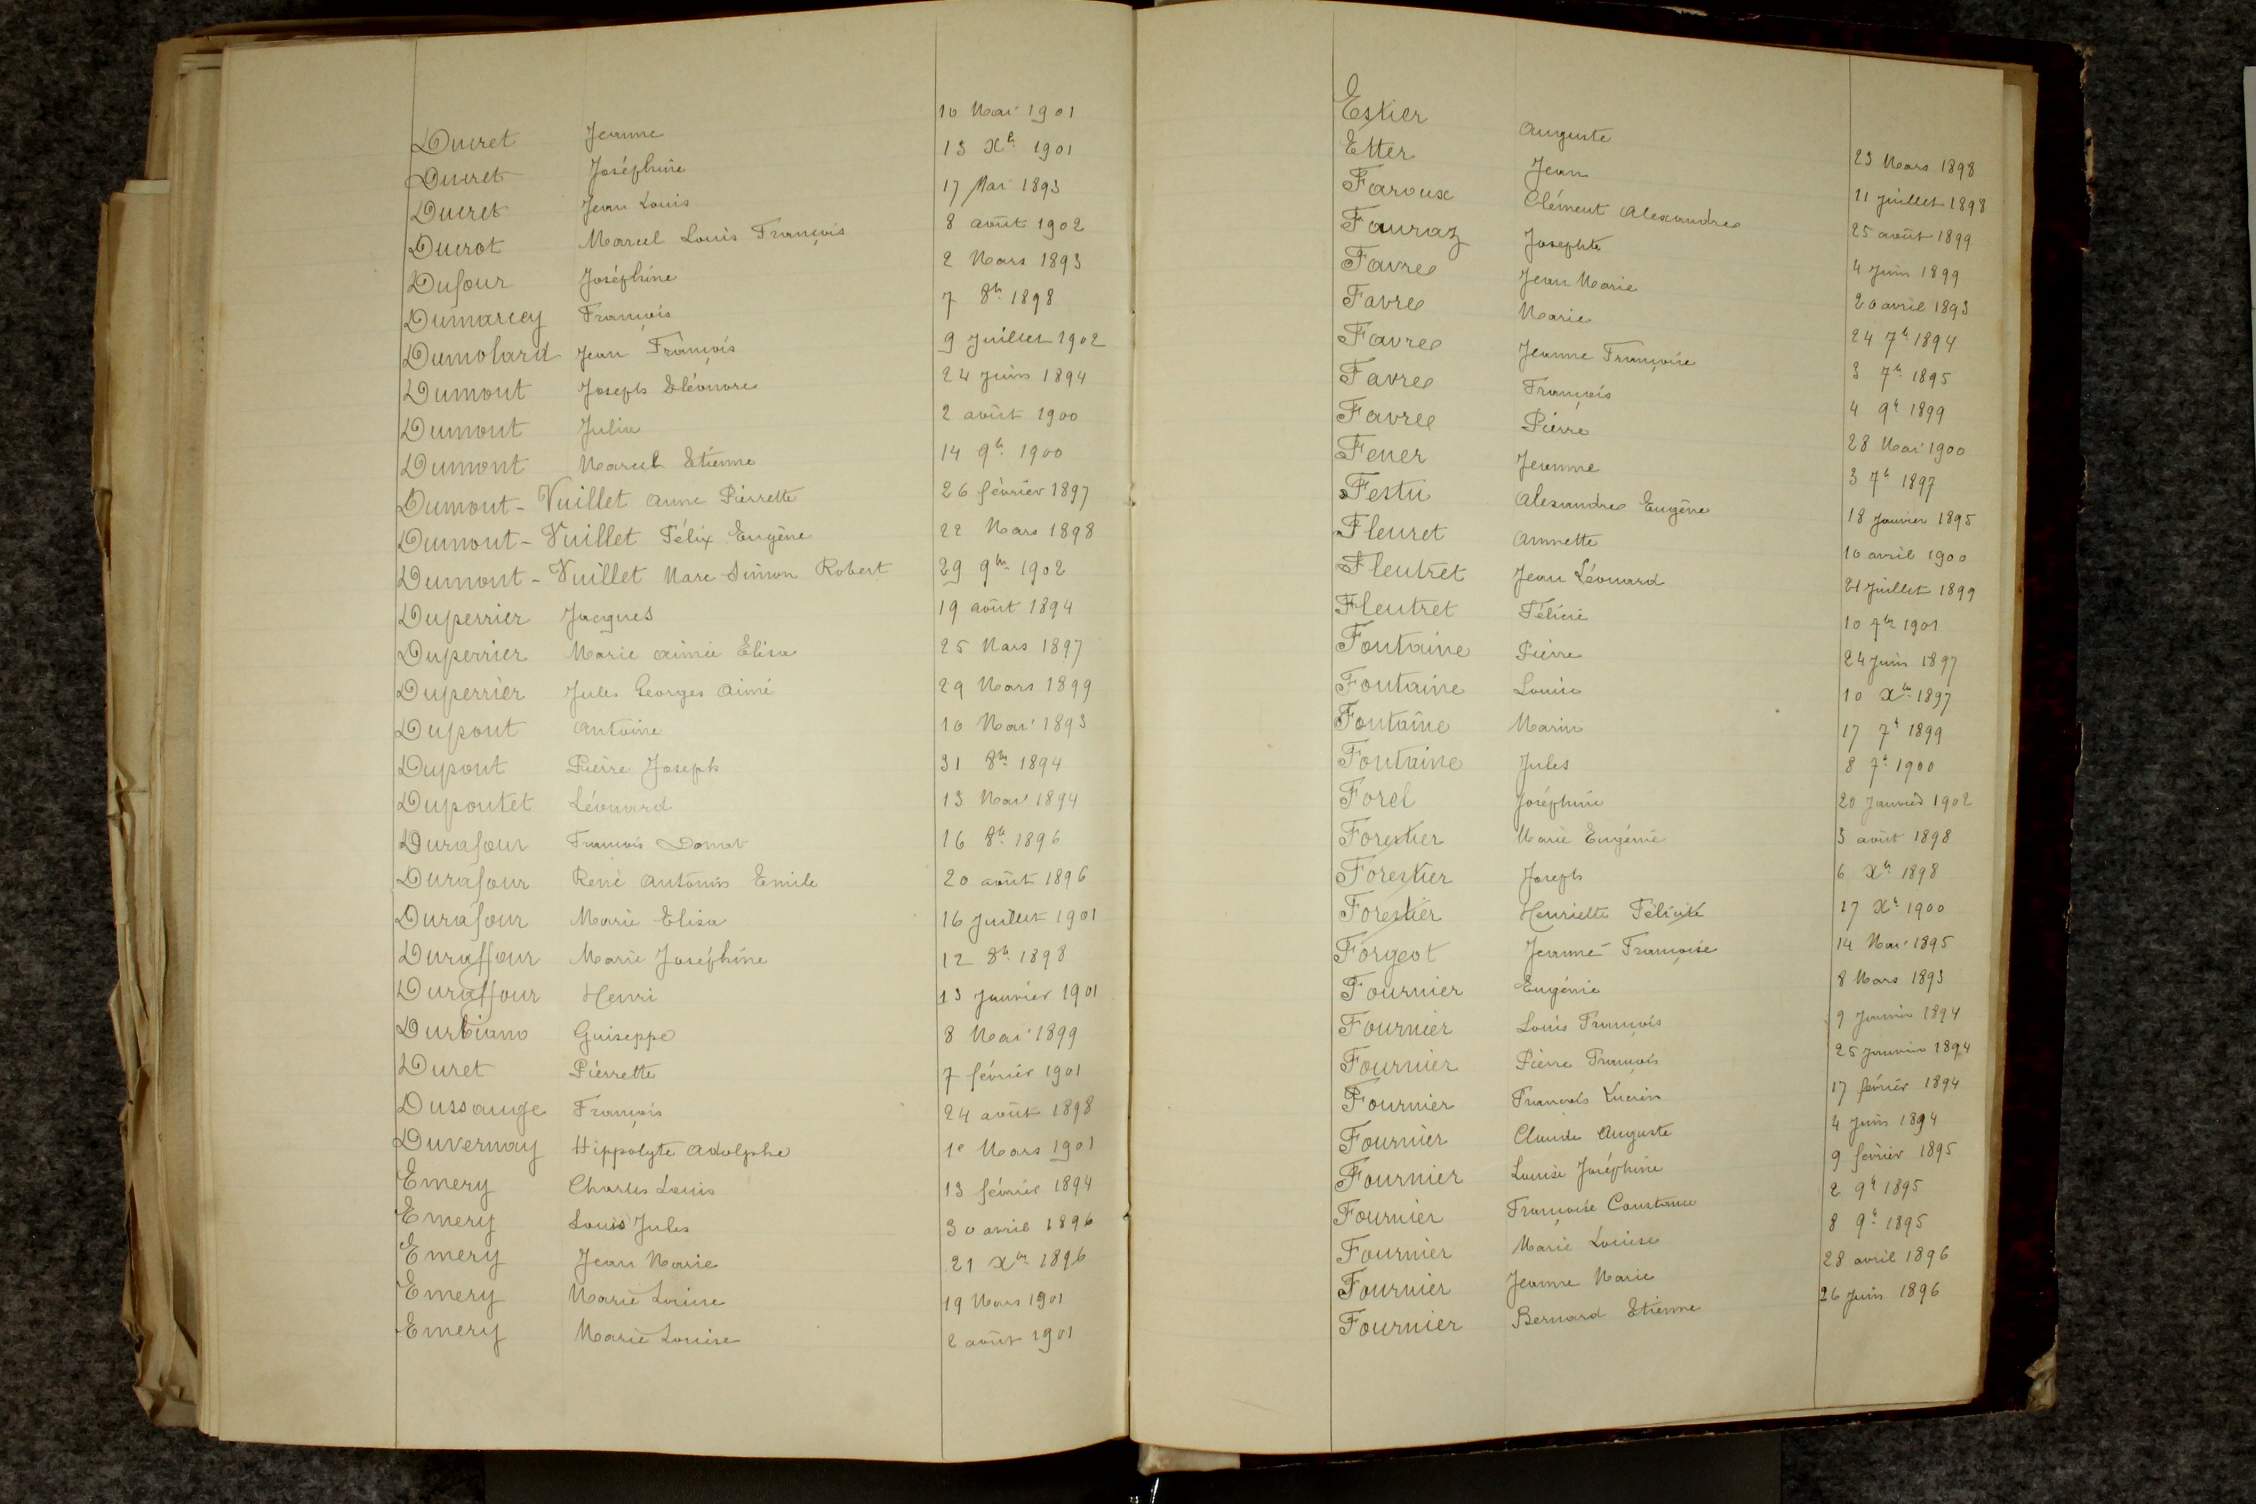 Ducret Jeanne 10 Mai 1901
Ducret Joséphine 13 Xb. 1901
Ducret Jean Louis 17 Mai 1893
Ducrot Marcel Louis François 8 août 1902
Dufour Joséphine 2 Mars 1893
Dumarcey François 7 8b. 1898
Dumolard Jean François 9 Juillet 1902
Dumont Joseph Eléonore 24 Juin 1894
Dumont Julia 2 août 1900
Dumont Marcel Etienne 14 9b. 1900
Dumont-Vuillet Anne Pierrette 26 février 1897
Dumont-Vuillet Félix Eugène 22 Mars 1898
Dumont-Vuillet Marc Simon Robert 29 9bre 1902
Duperrier Jacques 19 août 1894
Duperrier Marie Aimée Elisa 25 Mars 1897
Duperrier Jules Georges Aimé 29 Mars 1899
Dupont Antoine 10 Mai 1893
Dupont Pierre Joseph 31 8bre 1894
Dupontet Léonard 13 Mai 1894
Durafour François Donat 16 8b. 1896
Durafour René Antonin Emile 20 août 1896
Durafour Marie Elisa 16 Juillet 1901
Duraffour Marie Joséphine 12 8b. 1898
Duraffour Henri 13 Janvier 1901
Durbiano Guiseppe 8 Mai 1899
Duret Pierrette 7 février 1901
Dussauge François 24 août 1898
Duvernay Hippolyte Adolphe 1e Mars 1901
Emery Charles Louis 13 février 1894
Emery Louis Jules 30 avril 1896
Emery Jean Marie 21 Xbre 1896
Emery Marie Louise 19 Mars 1901
Emery Marie Louise 2 août 1901
Estier Auguste 23 Mars 1898
Etter Jean 11 Juillet 1898
Faroux Clément Alexandre 25 août 1899
Fauraz Josephte 4 Juin 1899
Favre Jean Marie 20 avril 1893
Favre Marie 24 7b 1894
Favre Jeanne Françoise 3 7b. 1895
Favre François 4 9b 1899
Favre Pierre 28 Mai 1900
Fener Jeanne 3 7b 1897
Festu Alexandre Eugène 18 Janvier 1895
Fleuret Annette 10 avril 1900
Fleutret Jean Léonard 21 Juillet 1899
Fleutret Félicie 10 7bre 1901
Fontaine Pierre 24 Juin 1897
Fontaine Louise 10 Xbre 1897
Fontaine Marin 17 7b 1899
Fontaine Jules 8 7b. 1900
Forel Joséphine 20 Janvier 1902
Forestier Marie Eugénie 3 août 1898
Forestier Joseph 6 Xb. 1898
Forestier Henriette Félicité 17 Xb. 1900
Forgeot Jeanne-Françoise 14 Mai 1895
Fournier Eugénie 8 Mars 1893
Fournier Louis François 9 Janvier 1894
Fournier Pierre François 25 Janvier 1894
Fournier François Lucien 17 février 1894
Fournier Claude Auguste 4 Juin 1894
Fournier Louise Joséphine 9 février 1895
Fournier Françoise Constance 2 9b 1895
Fournier Marie Louise 8 9b. 1895
Fournier Jeanne Marie 28 avril 1896
Fournier Bernard Etienne 26 Juin 1896